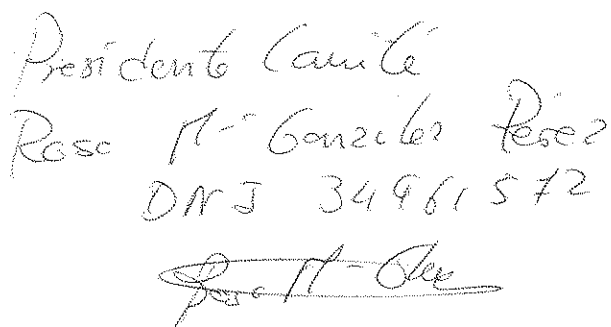 Presidente Comité
Rosa Mª González Pérez
DNI 34961572
Rosa Mª